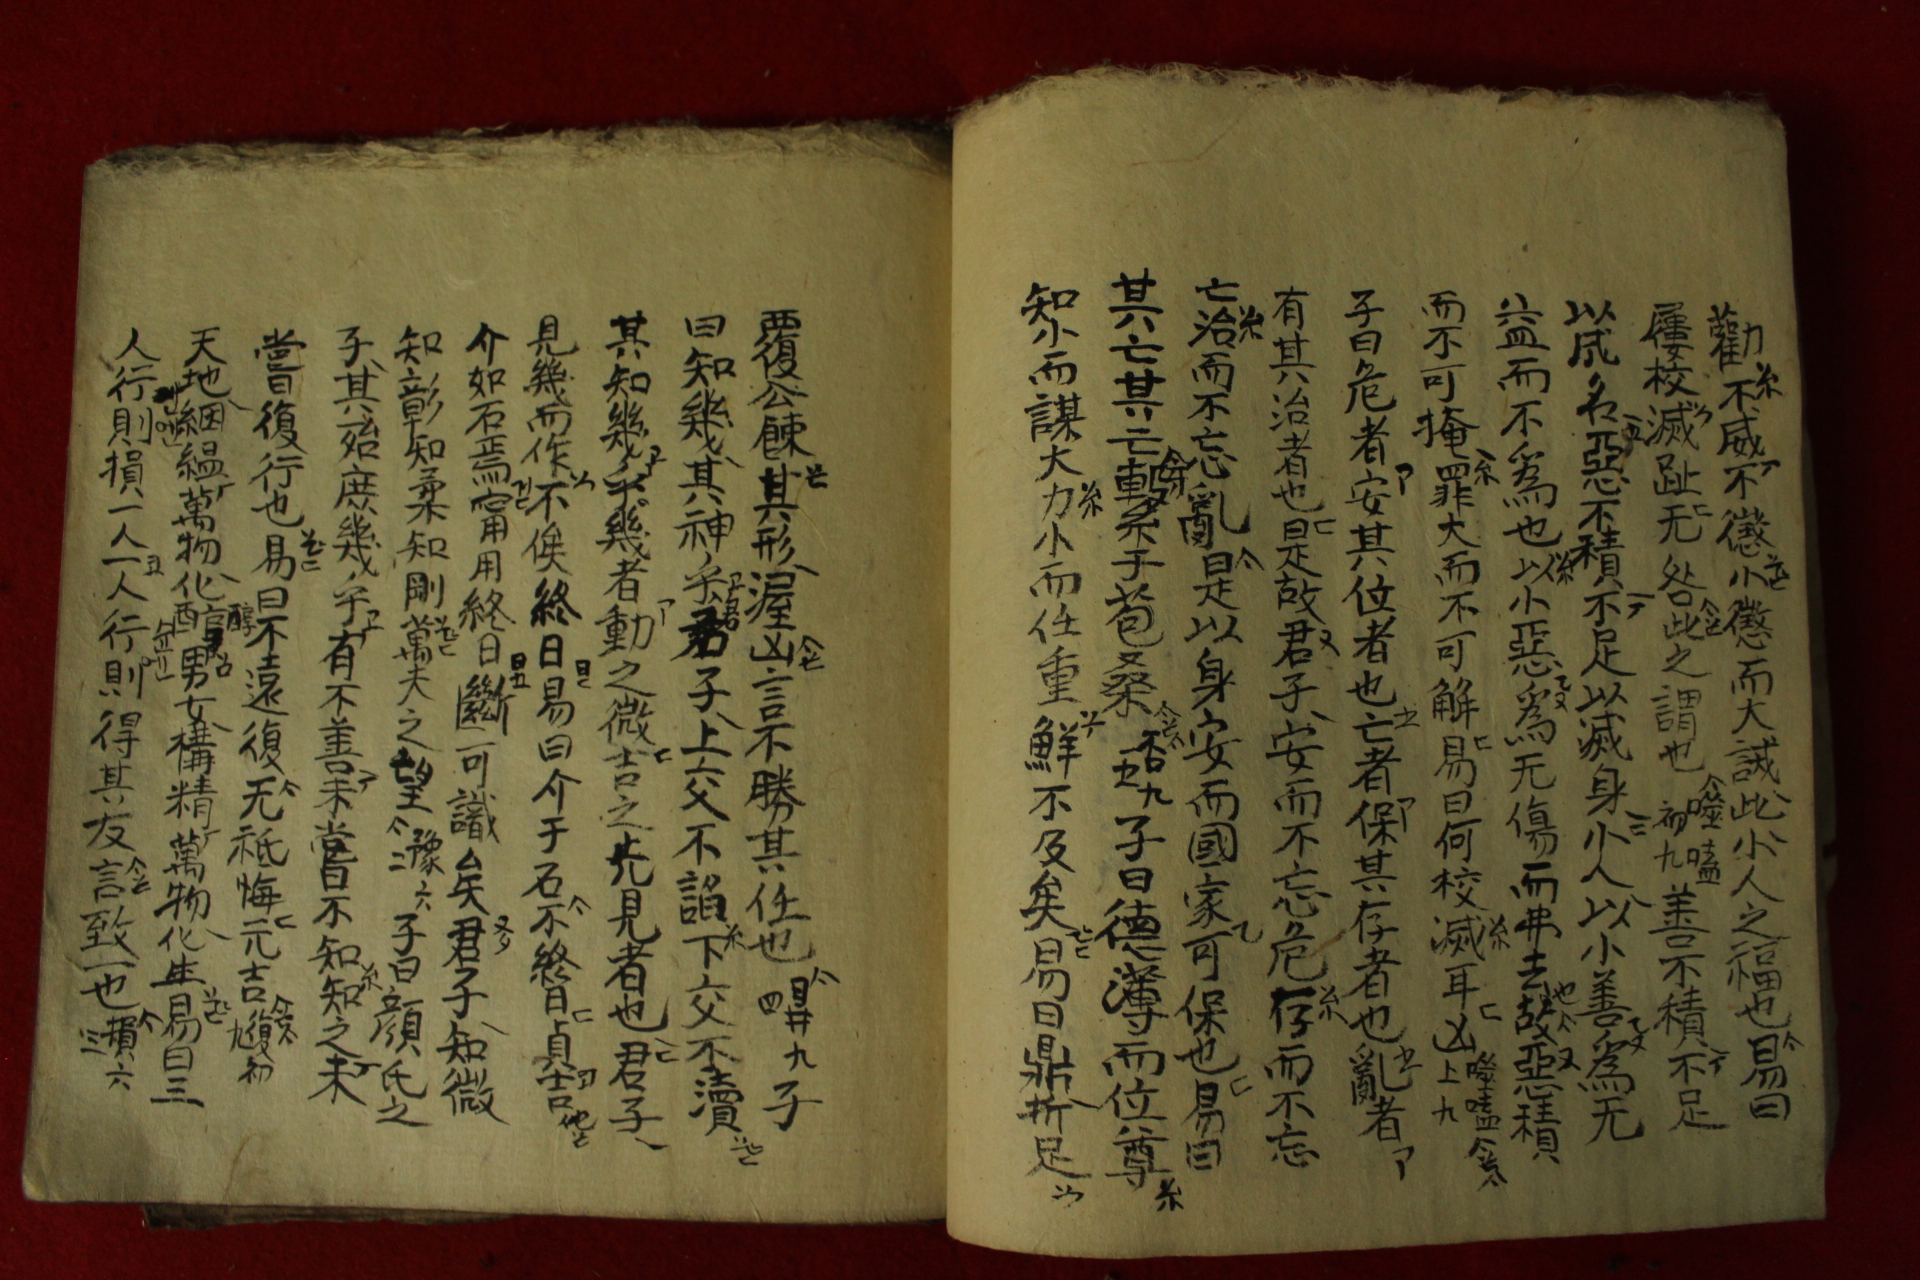 勸不威不懲小懲而大誡此小人之福也易曰
屨校滅趾无咎此之謂也噬嗑初九善不積不足
以成名惡不積不足以滅身小人以小善爲无
益而不爲也以小惡爲无傷而弗去故惡積
而不可掩罪大而不可解易曰何校滅耳凶噬嗑上九
子曰危者安其位者也亡者保其存者也亂者
有其治者也是故君子安而不忘危存而不忘
亡治而不忘亂是以身安而國家可保也易曰
其亡其亡繫于苞桑否九五子曰德薄而位尊
知小而謀大力小而任重鮮不及矣易曰鼎折足
覆公餗其形渥凶言不勝其任也鼎九四子
曰知幾其神乎君子上交不諂下交不瀆
其知幾乎幾者動之微吉之先見者也君子
見幾而作不俟終日易曰介于石不終日貞吉
介如石焉寗用終日斷可識矣君子知微
知彰知柔知剛萬夫之望豫六二子曰顔氏之
子其殆庶幾乎有不善未嘗不知知之未
嘗復行也易曰不遠復无祇悔元吉復初九
天地絪縕萬物化醇男女構精萬物化生易曰三
人行則損一人一人行則得其友言致一也損六三